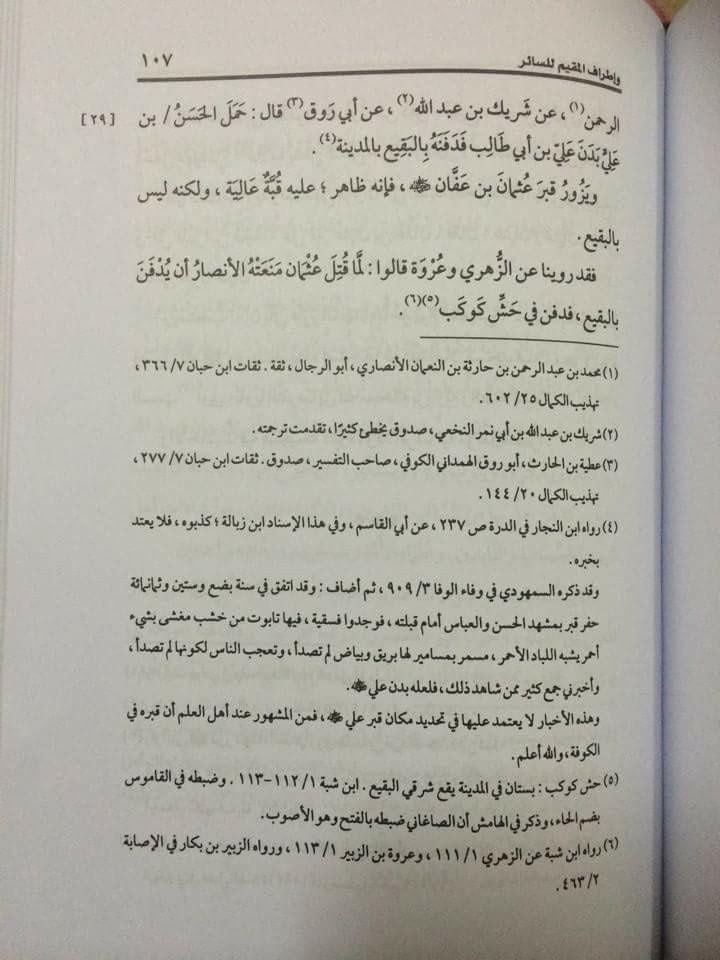 وإطراف المقيم للسائر
١٠٧
الرحمن(١)، عن شَريك بن عبد الله(٢)، عن أبي رَوق(٣) قال: حَمَلَ الحَسَنُ/ بن [٢٩]
عَلِيٍّ بَدَنَ عَلِيّ بن أبي طَالِب فَدَفَنَهُ بِالبَقِيع بالمدينة(٤).
ويَزُورُ قبرَ عُثمانَ بن عَفَّان ﷺ، فإنه ظاهر؛ عليه قُبَّةٌ عَالِيَة، ولكنه ليس
بالبقيع.
فقد روينا عن الزُّهري وعُرْوَة قالوا: لمَّا قُتِلَ عُثْمَان مَنَعَتْهُ الأنصارُ أن يُدْفَنَ
بالبقيع، فدفن في حَشِّ كَوكَب(٥)(٦).
(١) محمد بن عبد الرحمن بن حارثة بن النعمان الأنصاري، أبو الرجال، ثقة. ثقات ابن حبان ٧/ ٣٦٦،
تهذيب الكمال ٢٥/ ٦٠٢.
(٢) شريك بن عبد الله بن أبي نمر النخعي، صدوق يخطئ كثيرًا، تقدمت ترجمته.
(٣) عطية بن الحارث، أبو روق الهمداني الكوفي، صاحب التفسير، صدوق. ثقات ابن حبان ٧/ ٢٧٧،
تهذيب الكمال ٢٠/ ١٤٤.
(٤) رواه ابن النجار في الدرة ص ٢٣٧، عن أبي القاسم، وفي هذا الإسناد ابن زبالة؛ كذبوه، فلا يعتد
بخبره.
وقد ذكره السمهودي في وفاء الوفا ٣/ ٩٠٩، ثم أضاف: وقد اتفق في سنة بضع وستين وثمانمائة
حفر قبر بمشهد الحسن والعباس أمام قبلته، فوجدوا فسقية، فيها تابوت من خشب مغشى بشيء
أحمر يشبه اللباد الأحمر، مسمر بمسامير لها بريق وبياض لم تصدأ، وتعجب الناس لكونها لم تصدأ،
وأخبرني جمع كثير ممن شاهد ذلك، فلعله بدن علي.
وهذه الأخبار لا يعتمد عليها في تحديد مكان قبر علي، فمن المشهور عند أهل العلم أن قبره في
الكوفة، والله أعلم.
(٥) حش كوكب: بستان في المدينة يقع شرقي البقيع. ابن شبة ١/ ١١٢-١١٣. وضبطه في القاموس
بضم الحاء، وذكر في الهامش أن الصاغاني ضبطه بالفتح وهو الأصوب.
(٦) رواه ابن شبة عن الزهري ١/ ١١١، وعروة بن الزبير ١/ ١١٣، ورواه الزبير بن بكار في الإصابة
٢/ ٤٦٣.